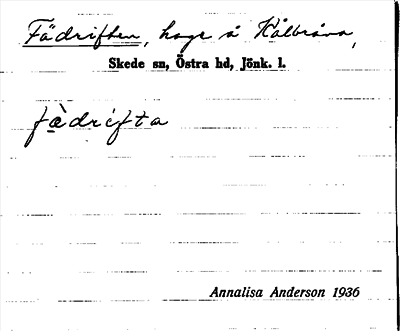 Fädriften, hage å Kålbråna,
Skede sn, Östra hd, Jönk. l.
fàdrifta
Annalisa Anderson 1936